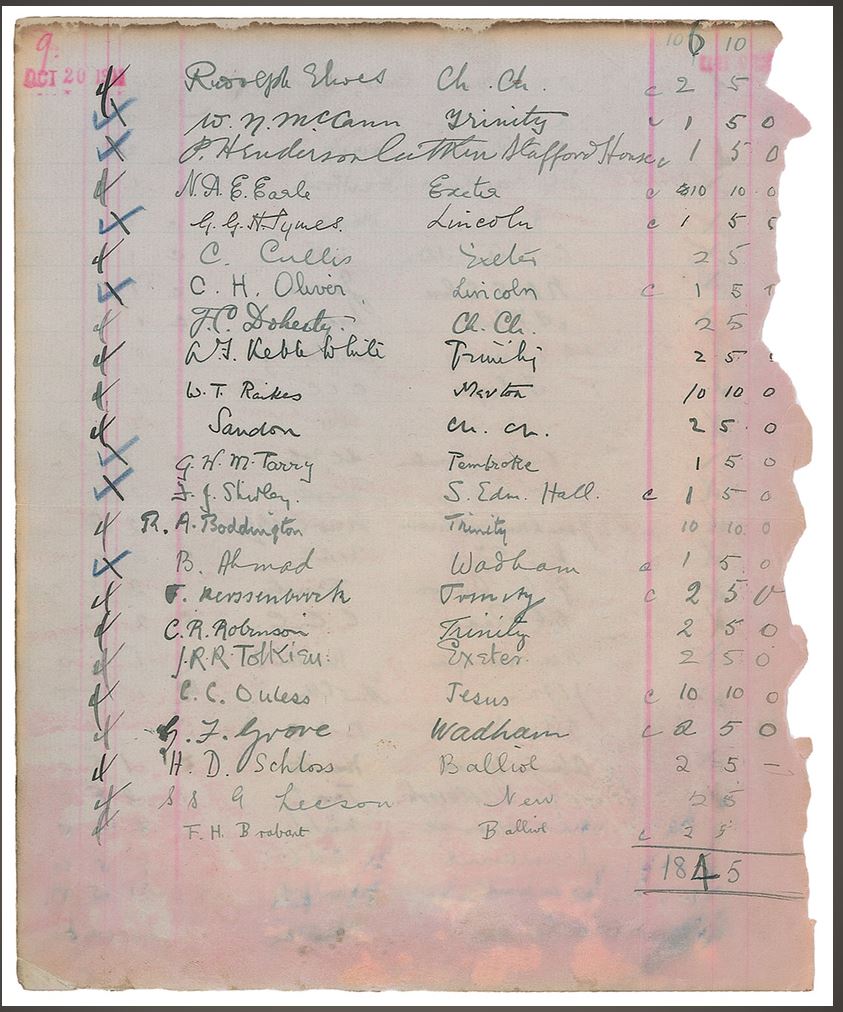 9.
OCT 20
106 10
Rudolph Elwes Ch. Ch. c 2 5
W. N. McCann Trinity c 1 5 0
P. Henderson Stafford House c 1 5 0
N. A. E. Earle Exeter c 10 10 0
G. G. H. Symes. Lincoln c 1 5
C. Cullis Exeter 2 5
C. H. Oliver Lincoln c 1 5
J. C. Doherty. Ch. Ch. 2 5
Keble White Trinity 2 5
W. T. Raikes Merton 10 10 0
Sandon Ch. Ch. 2 5 0
G. H. M. Pembroke 1 5 0
Shirley. S. Edm. Hall. c 1 5 0
R. A. Boddington Trinity 10 10 0
B. Ahmad Wadham c 1 5 0
F. Kerssenbrock Trinity c 2 5 0
C. R. Robinson Trinity 2 5 0
J. R. R. Tolkien. Exeter. 2 5 0
C. C. Ouless Jesus c 10 10 0
G. F. Grove Wadham c 2 5 0
H. D. Schloss Balliol 2 5 –
S S G Leeson New 2 5
F. H. Brabant Balliol c 2 5
184 5